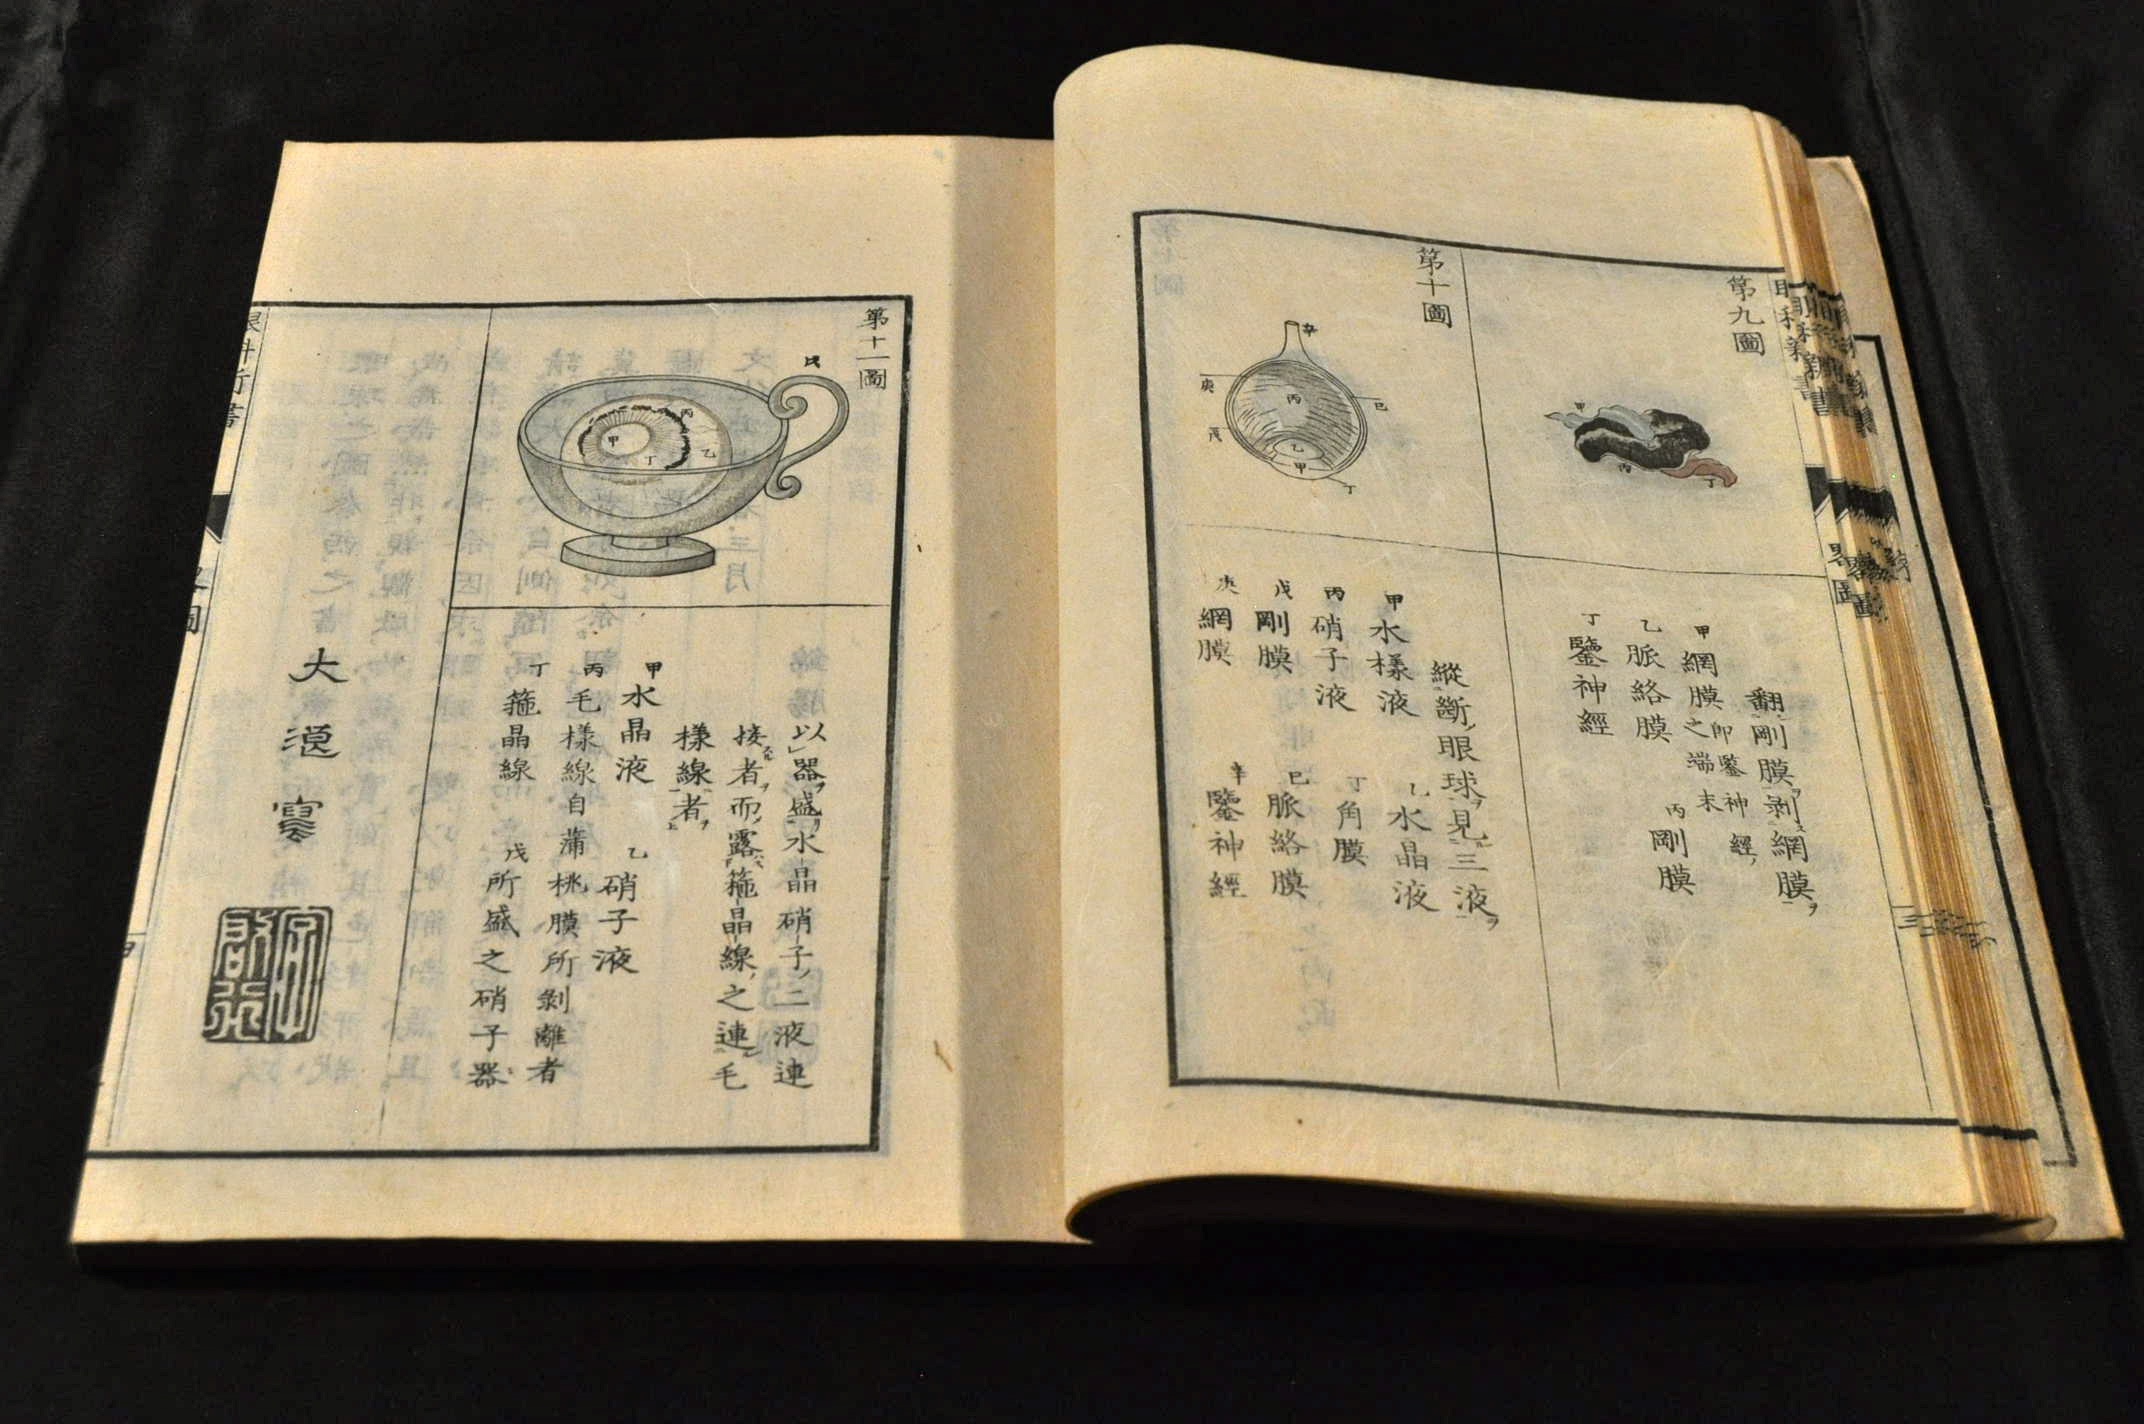 第九圖
甲
丙
丁
翻剛膜ヲ剥網膜ヲ
甲 網膜之端末
即鑒神經
乙 脈絡膜
丙 剛膜
丁 鑒神經
第十圖
辛
庚
丙
己
戊
乙
甲
丁
縱斷眼球ヲ見三液ヲ
甲 水樣液
乙 水晶液
丙 硝子液
丁 角膜
戊 剛膜
己 脈絡膜
庚 網膜
辛 鑒神經
第十一圖
戊
丙
甲
丁
乙
以器盛水晶硝子二液連
接者而露箍晶線之連毛
樣線者
甲 水晶液
乙 硝子液
丙 毛樣線自蒲桃膜所剝離者
丁 箍晶線
戊 所盛之硝子器
大
寫
眼科新書